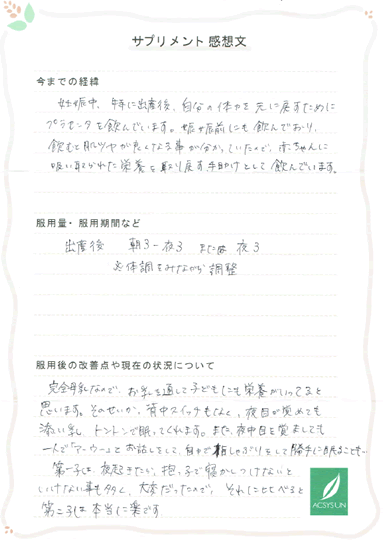 サプリメント 感想文
今までの経緯
妊娠中、特に出産後、自分の体力を元に戻すために
プラセンタを飲んでいます。妊娠前にも飲んでおり、
飲むと肌ツヤが良くなる事が分かっていたので、赤ちゃんに
吸い取られた栄養を取り戻す手助けとして飲んでいます。
服用量・服用期間など
出産後 朝3-夜3 または 夜3
※体調をみながら調整
服用後の改善点や現在の状況について
完全母乳なので、お乳を通して子どもにも栄養がいってると
思います。そのせいか、背中スイッチもなく、夜目が覚めても
添い乳、トントンで眠ってくれます。また、夜中目を覚ましても
一人で「アーウー」とお話しをして、自分で指しゃぶりをして勝手に眠ることも…
第一子は、夜起きたり、抱っ子で寝かしつけないと
いけない事も多く、大変だったので、それに比べると
第二子は本当に楽です
ACSYSUN